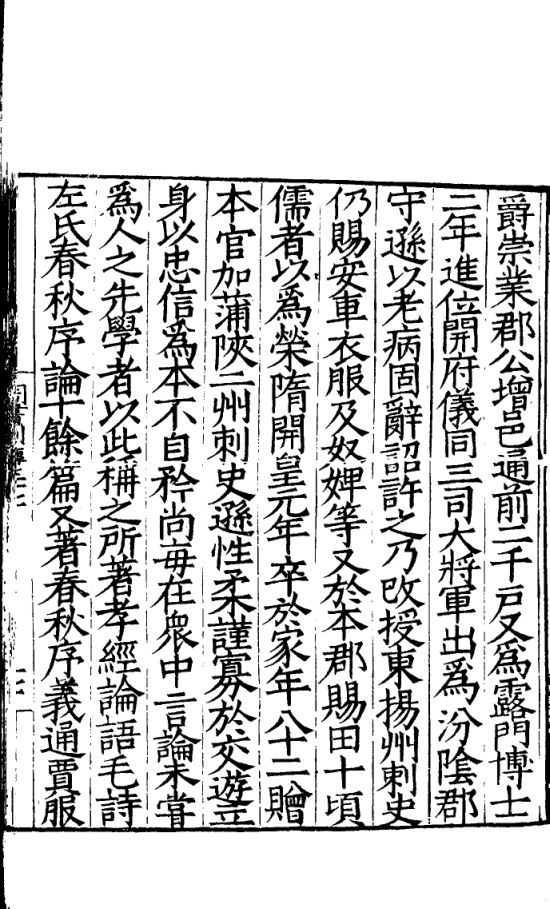 爵崇業郡公增邑通前二千户又爲露門博士
二年進位開府儀同三司大將軍出爲汾陰郡
守遜以老病固辭詔許之乃改授東揚州刺史
仍賜安車衣服及奴婢等又於本郡賜田十頃
儒者以爲榮隋開皇元年卒於家年八十二贈
本官加蒲陝二州刺史遜性柔謹寡於交遊立
身以忠信爲本不自矜尚每在衆中言論未甞
爲人之先學者以此稱之所著孝經論語毛詩
左氏春秋序論十餘篇又著春秋序義通賈服